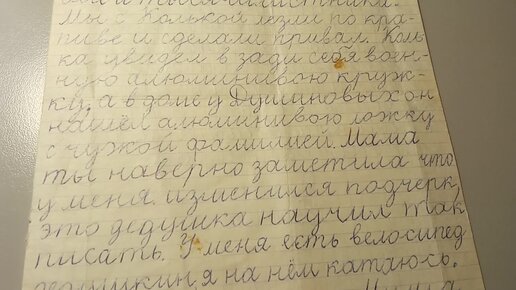 Мы с Колькой лезли по кра-
пиве и сделали привал. Коль-
ка увидел в зади себя воен-
ную алюминивою круж-
ку, а в доме у Душиновых он
нашёл алюминивою ложку
с чужой фамилией. Мама
ты наверно заметила что
у меня изменился подчерк,
это дедушка научил так
писать. У меня есть велосипед
дедушкин я на нём катаюсь.